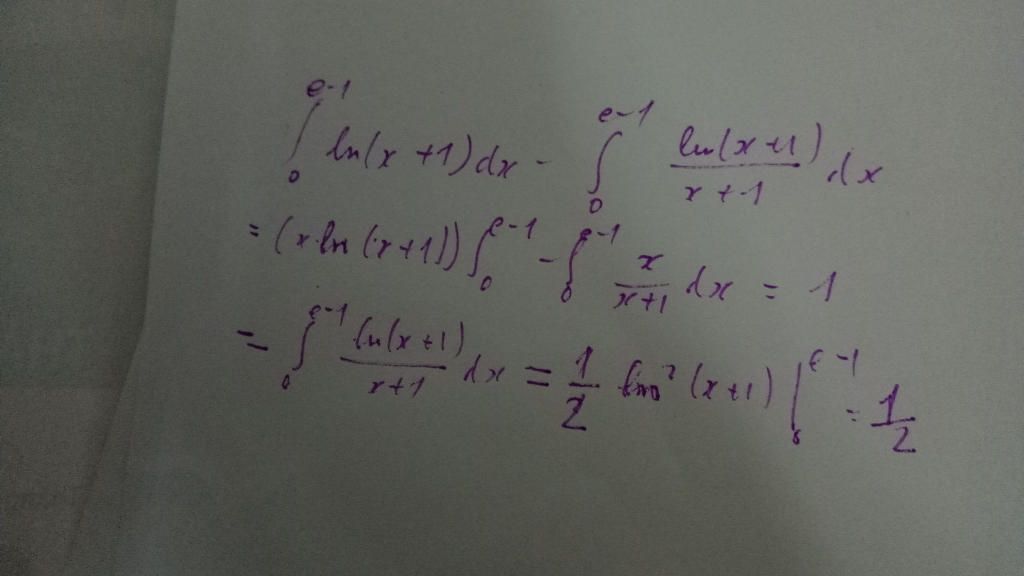 ∫₀^{e-1} ln(x+1)dx - ∫₀^{e-1} ln(x+1)/(x+1) dx
= (x·ln(x+1))∫₀^{e-1} - ∫₀^{e-1} x/(x+1) dx = 1
= ∫₀^{e-1} ln(x+1)/(x+1) dx = 1/2 ln²(x+1)|₀^{e-1} = 1/2